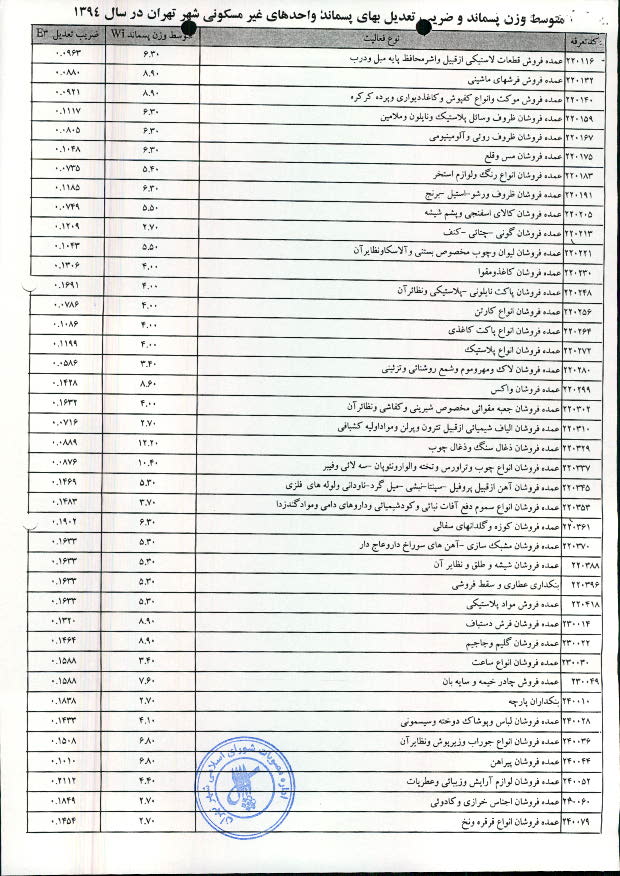 متوسط وزن پسماند و ضریب تعدیل بهای پسماند واحدهای غیر مسکونی شهر تهران در سال ۱۳۹٤
کدتعرفه نوع فعالیت متوسط وزن پسماند Wi ضریب تعدیل Er
۲۲۰۱۱۶ عمده فروش قطعات لاستیکی ازقبیل واشرمحافظ پایه مبل ودرب ۶.۳۰ ۰.۰۹۶۳
۲۲۰۱۳۲ عمده فروش فرشهای ماشینی ۸.۹۰ ۰.۰۸۸۰
۲۲۰۱۴۰ عمده فروش موکت وانواع کفپوش وکاغذدیواری وپرده کرکره ۸.۹۰ ۰.۰۹۲۱
۲۲۰۱۵۹ عمده فروشان ظروف وسائل پلاستیک ونایلون وملامین ۶.۳۰ ۰.۱۱۱۷
۲۲۰۱۶۷ عمده فروشان ظروف روئی وآلومینیومی ۶.۳۰ ۰.۰۸۰۵
۲۲۰۱۷۵ عمده فروشان مس وقلع ۶.۳۰ ۰.۱۰۴۸
۲۲۰۱۸۳ عمده فروشان انواع رنگ ولوازم استخر ۵.۴۰ ۰.۰۷۳۵
۲۲۰۱۹۱ عمده فروشان ظروف ورشو-استیل -برنج ۶.۳۰ ۰.۱۱۸۵
۲۲۰۲۰۵ عمده فروشان کالای اسفنجی وپشم شیشه ۵.۵۰ ۰.۰۷۴۹
۲۲۰۲۱۳ عمده فروشان گونی -چتائی -کنف ۲.۷۰ ۰.۱۲۰۹
۲۲۰۲۲۱ عمده فروشان لیوان وچوب مخصوص بستنی وآلاسکاونظایرآن ۵.۵۰ ۰.۱۰۴۳
۲۲۰۲۳۰ عمده فروشان کاغذومقوا ۴.۰۰ ۰.۱۳۰۶
۲۲۰۲۴۸ عمده فروشان پاکت نایلونی -پلاستیکی ونظائرآن ۴.۰۰ ۰.۱۶۹۱
۲۲۰۲۵۶ عمده فروشان انواع کارتن ۴.۰۰ ۰.۰۷۸۶
۲۲۰۲۶۴ عمده فروشان انواع پاکت کاغذی ۴.۰۰ ۰.۱۰۸۶
۲۲۰۲۷۲ عمده فروشان انواع پلاستیک ۴.۰۰ ۰.۱۱۹۹
۲۲۰۲۸۰ عمده فروشان لاک ومهروموم وشمع روشنائی وتزئینی ۳.۴۰ ۰.۰۵۸۶
۲۲۰۲۹۹ عمده فروشان واکس ۸.۶۰ ۰.۱۴۲۸
۲۲۰۳۰۲ عمده فروشان جعبه مقوائی مخصوص شیرینی وکفاشی ونظائرآن ۴.۰۰ ۰.۱۶۳۲
۲۲۰۳۱۰ عمده فروشان الیاف شیمیائی ازقبیل تترون وپرلن ومواداولیه کشبافی ۲.۷۰ ۰.۰۷۱۶
۲۲۰۳۲۹ عمده فروشان ذغال سنگ وذغال چوب ۱۲.۲۰ ۰.۰۸۸۹
۲۲۰۳۳۷ عمده فروشان انواع چوب وتراورس وتخته والوارونئوپان -سه لائی وفیبر ۱۰.۴۰ ۰.۰۸۷۶
۲۲۰۳۴۵ عمده فروشان آهن ازقبیل پروفیل -سپنتا-نبشی -میل گرد-ناودانی ولوله های فلزی ۵.۳۰ ۰.۱۴۶۹
۲۲۰۳۵۳ عمده فروشان انواع سموم دفع آفات نباتی وکودشیمیائی وداروهای دامی وموادگندزدا ۳.۷۰ ۰.۱۴۸۳
۲۲۰۳۶۱ عمده فروشان کوزه وگلدانهای سفالی ۶.۳۰ ۰.۱۹۰۲
۲۲۰۳۷۰ عمده فروشان مشبک سازی -آهن های سوراخ داروعاج دار ۵.۳۰ ۰.۱۶۳۳
۲۲۰۳۸۸ عمده فروشان شیشه و طلق و نظایر آن ۵.۳۰ ۰.۱۶۳۳
۲۲۰۳۹۶ بنکداری عطاری و سقط فروشی ۵.۳۰ ۰.۱۶۳۳
۲۲۰۴۱۸ عمده فروش مواد پلاستیکی ۵.۳۰ ۰.۱۶۳۳
۲۳۰۰۱۴ عمده فروشان فرش دستباف ۸.۹۰ ۰.۱۳۲۰
۲۳۰۰۲۲ عمده فروشان گلیم وجاجیم ۸.۹۰ ۰.۱۴۶۴
۲۳۰۰۳۰ عمده فروشان انواع ساعت ۳.۴۰ ۰.۱۵۸۸
۲۳۰۰۴۹ عمده فروش چادر خیمه و سایه بان ۷.۶۰ ۰.۱۵۸۸
۲۴۰۰۱۰ بنکداران پارچه ۲.۷۰ ۰.۱۸۳۸
۲۴۰۰۲۸ عمده فروشان لباس وپوشاک دوخته وسیسمونی ۴.۱۰ ۰.۱۴۳۳
۲۴۰۰۳۶ عمده فروشان انواع جوراب وزیرپوش ونظایرآن ۶.۸۰ ۰.۱۵۰۸
۲۴۰۰۴۴ عمده فروشان پیراهن ۶.۸۰ ۰.۱۰۱۰
۲۴۰۰۵۲ عمده فروشان لوازم آرایش وزیبائی وعطریات ۴.۴۰ ۰.۲۱۱۲
۲۴۰۰۶۰ عمده فروشان اجناس خرازی وکادوئی ۲.۷۰ ۰.۱۸۴۹
۲۴۰۰۷۹ عمده فروشان انواع قرقره ونخ ۲.۷۰ ۰.۱۴۵۴
اداره مصوبات شورای اسلامی شهر تهران